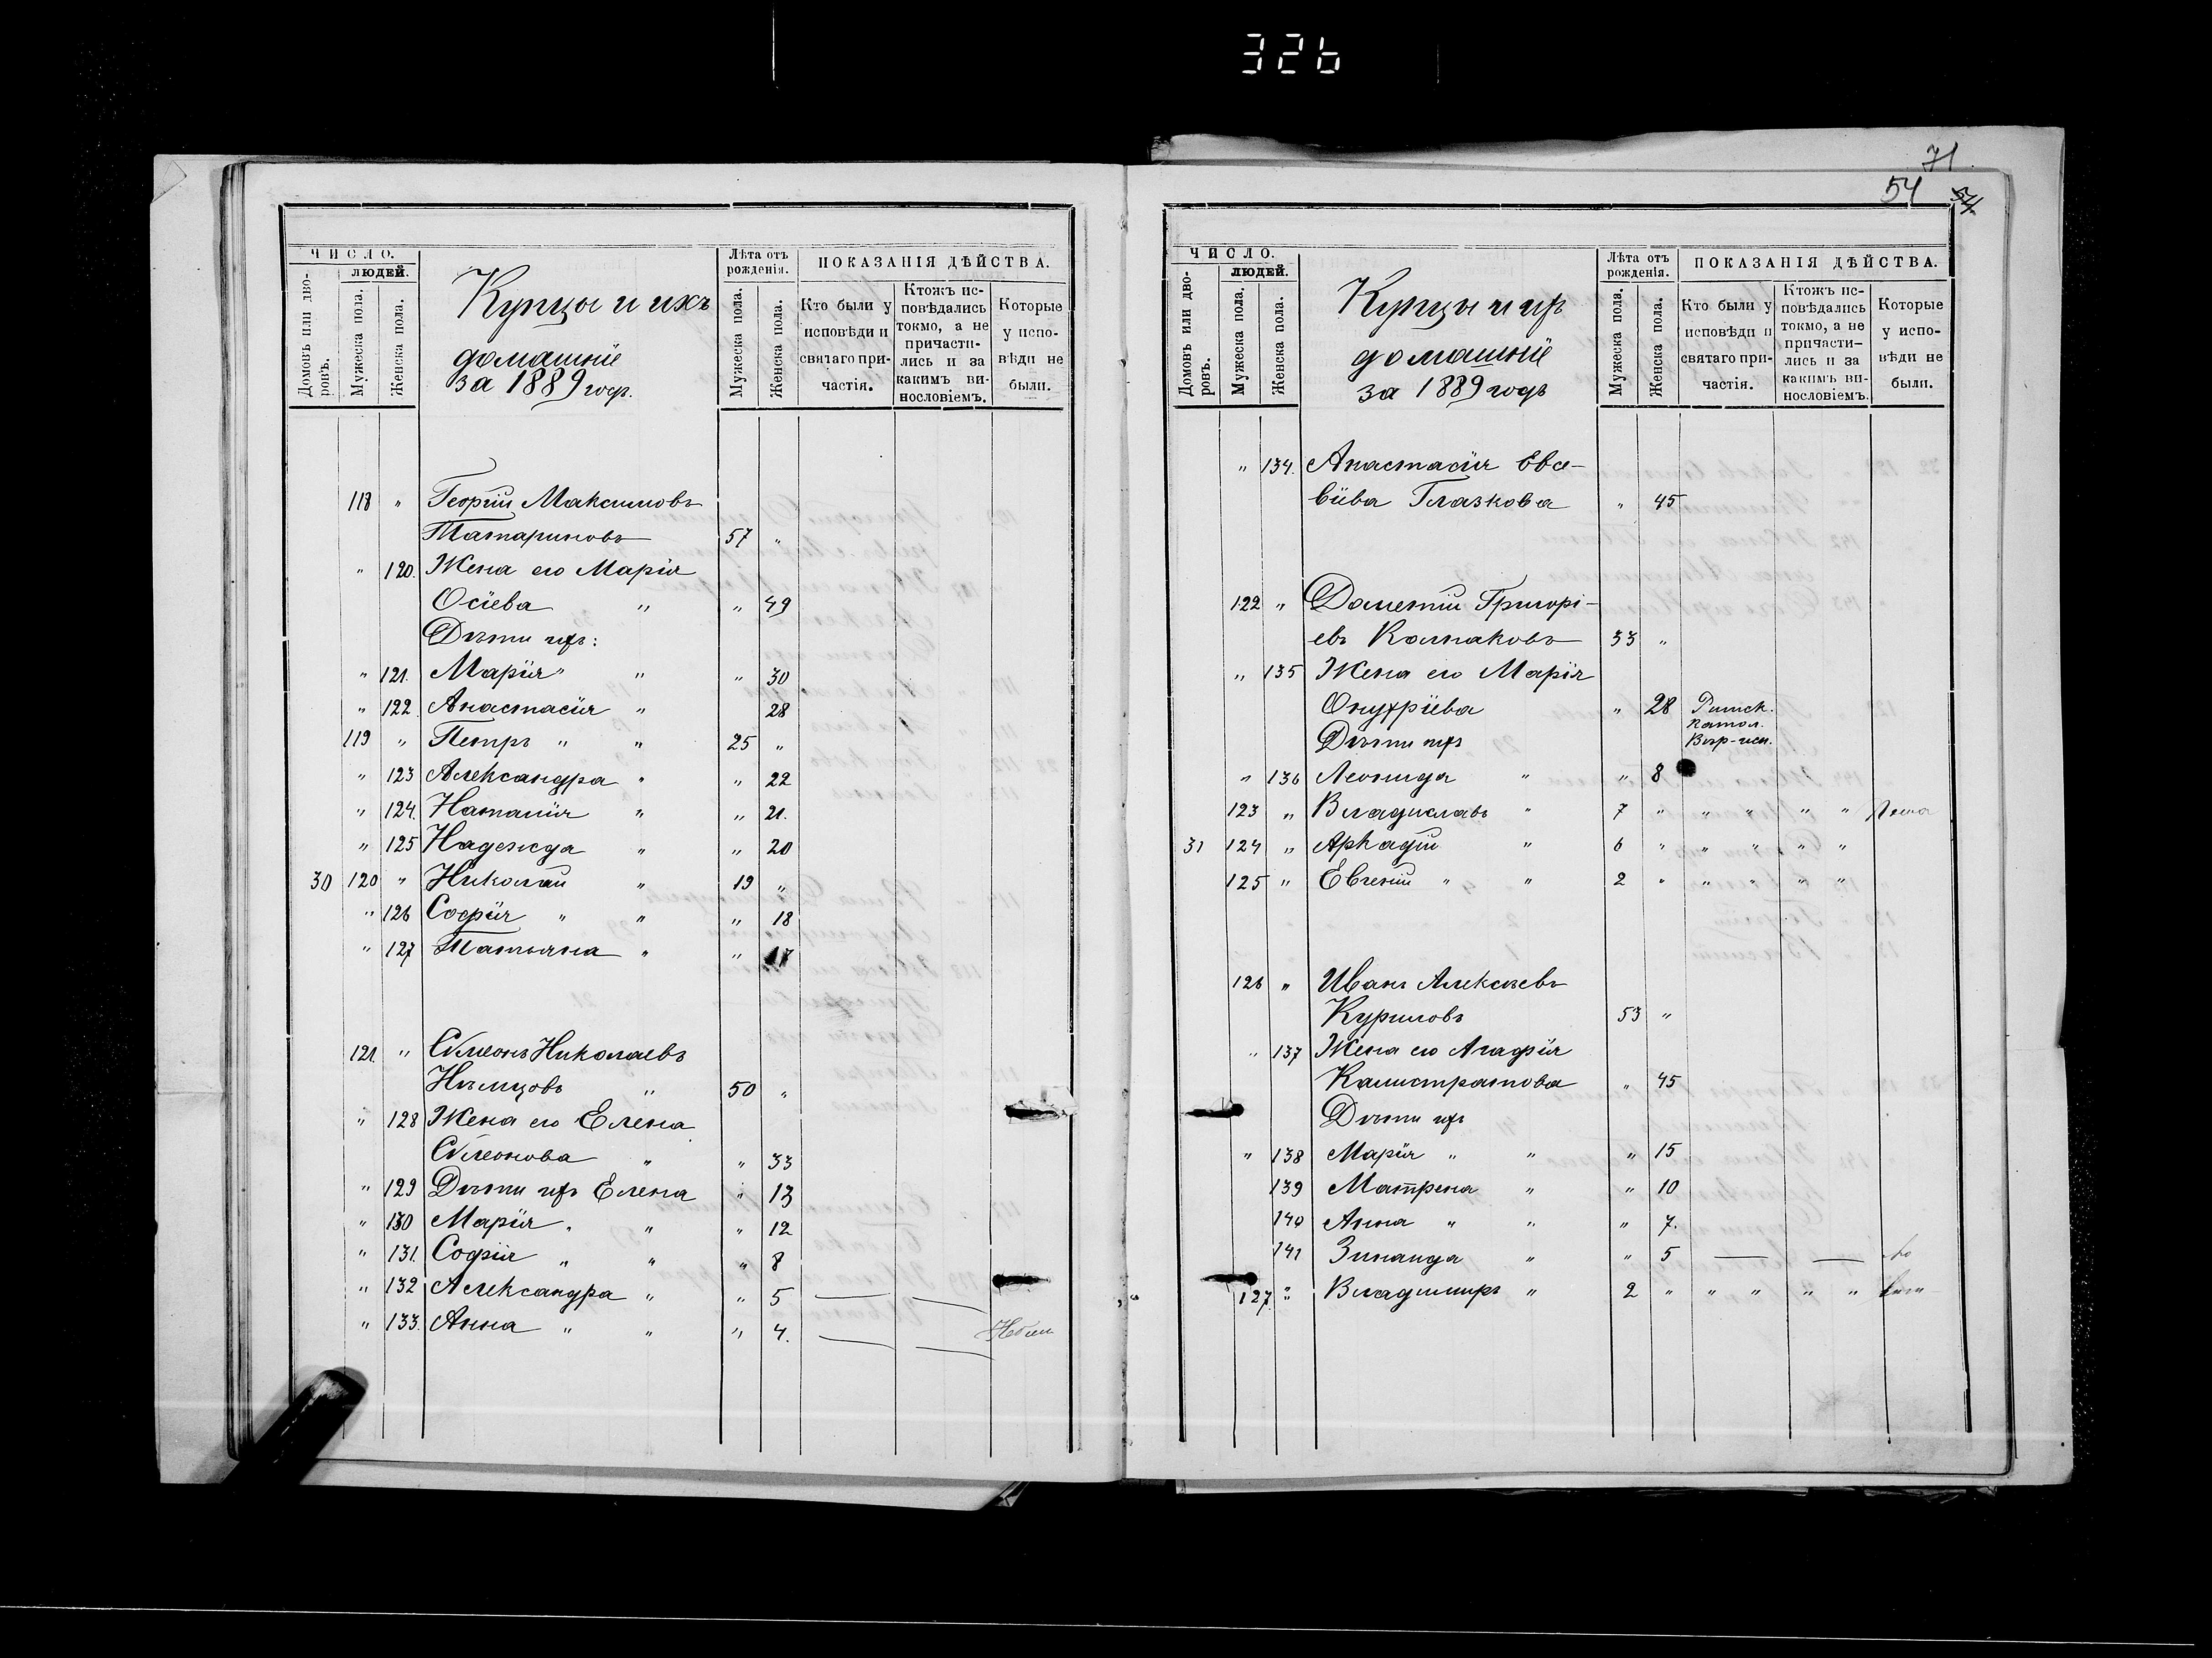 326
ЧИСЛО.
людей.
Домовъ или дво-
ровъ.
Мужеска пола.
Женска пола.
Купцы и ихъ
домашніе
за 1889 годъ.
Лѣта отъ
рожденія.
Мужеска пола.
Женска пола.
ПОКАЗАНІЯ ДѢЙСТВА.
Кто были у
исповѣди и
святаго при-
частія.
Ктожъ ис-
повѣдались
токмо, а не
причасти-
лись и за
какимъ ви-
нословіемъ.
Которые
у испо-
вѣди не
были.
118 " Георгій Максимовъ
Татариновъ 57 "
" 120. Жена его Марія
Осіева " " 49
Дѣти ихъ:
" 121. Марія " " " 30
" 122. Анастасія " 28
119 " Петръ " " 25 "
" 123 Александра " " 22
" 124. Наталія " " 21.
" 125 Надежда " " 20
30 120 " Николай " 19 "
" 126 Софія " " " 18
" 127 Татьяна " " 17
121. " Симеонъ Николаевъ
Нѣмцовъ " 50 "
" 128 Жена его Елена
Симеонова " " 33
" 129 Дѣти ихъ Елена " 13
" 130 Марія " " " 12
" 131. Софія " " " 8
" 132 Александра " " 5 — —
" 133. Анна " " " 4. — —
71
54 54
ЧИСЛО.
людей.
Домовъ или дво-
ровъ.
Мужеска пола.
Женска пола.
Купцы и ихъ
домашніе
за 1889 годъ
Лѣта отъ
рожденія.
Мужеска пола.
Женска пола.
ПОКАЗАНІЯ ДѢЙСТВА.
Кто были у
исповѣди и
святаго при-
частія.
Ктожъ ис-
повѣдались
токмо, а не
причасти-
лись и за
какимъ ви-
нословіемъ.
Которые
у испо-
вѣди не
были.
" 134. Анастасія Евсе-
віева Глазкова " 45
122 " Дометій Григорі-
евъ Колпаковъ 33 "
" 135 Жена его Марія
Онуфріева " 28 Римск.
Катол.
Дѣти ихъ Вѣр-исп.
" 136 Леонида " " 8
123 " Владиславъ " 7 " " " " "
31 124 " Аркадій " 6 " " " " "
125 " Евгеній " " 2 " " " " "
126 " Иванъ Алексѣевъ
Куриловъ 53 "
" 137 Жена его Агафія
Калистратова " 45
Дѣти ихъ
" 138 Марія " " " 15
139 Матрена " " 10
140 Анна " " " 7.
141 Зинаида " " 5 — —
127 " Владимиръ " 2 " " " " "